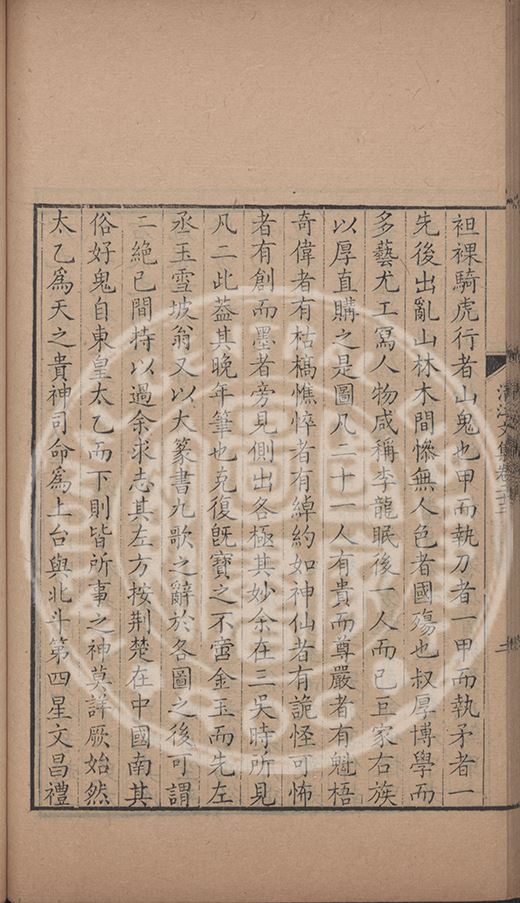 袒裸騎虎行者山鬼也甲而執刀者一甲而執矛者一
先後出亂山林木間慘無人色者國殤也叔厚博學而
多藝尤工寫人物咸稱李龍眠後一人而已巨家右族
以厚直購之是圖凡二十一人有貴而尊嚴者有魁梧
奇偉者有枯槁憔悴者有綽約如神仙者有詭怪可怖
者有創而墨者旁見側出各極其妙余在三吳時所見
凡二此葢其晚年筆也克復旣寶之不啻金玉而先左
丞玉雪坡翁又以大篆書九歌之辭於各圖之後可謂
二絕已間持以過余求志其左方桉荆楚在中國南其
俗好鬼自東皇太乙而下則皆所事之神莫詳厥始然
太乙爲天之貴神司命爲上台與北斗第四星文昌禮